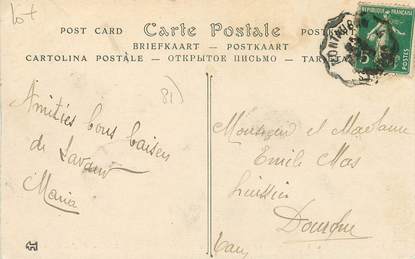 lot
POST CARD Carte Postale POSTKARTE
BRIEFKAART - POSTKAART
CARTOLINA POSTALE - ОТКРЫТОЕ ПИСЬМО -
RÉPUBLIQUE FRANÇAISE
POSTES
5
MONTAUBAN
81)
Amitiés bons baisers
de Lavaur
Maria
Monsieur et Madame
Emile Mas
huissier
Dourgne
Tarn